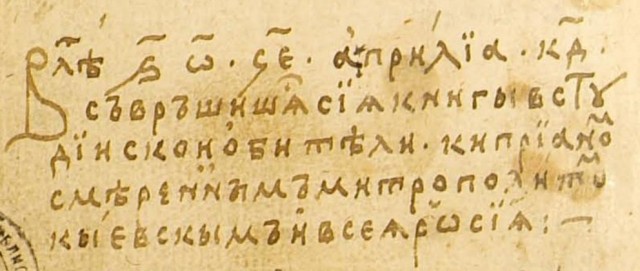 В лѣ҃ ҂ѕ҃ ѡ҃ · ч҃е · а҆прїлїа · к҃д ·
съврьшишѧ сїѧ книгы в стꙋ
дїискои ѻ҆бители · кипрїаном
смѣреннымъ митрополитѡм
кыевскымъ и҆ всеѧ рѡсїѧ : —